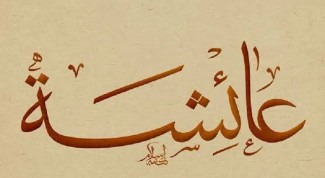 عائشة